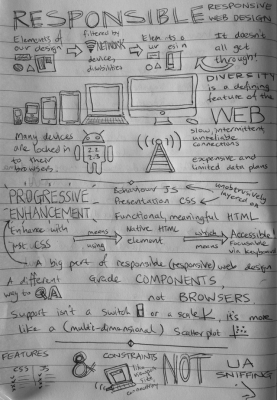 RESPONSIBLE RESPONSIVE WEB DESIGN
Elements of our design
filtered by
NETWORK
devices, disabilities
It doesn't all get through!
DIVERSITY is a defining feature of the WEB
Many devices are locked in to their browsers.
slow, intermittent, unreliable connections
expensive and limited data plans
PROGRESSIVE ENHANCEMENT
Behaviour JS
Presentation CSS
Functional, meaningful HTML
unobtrusively layered on
Enhance with just CSS
means using
Native HTML element
which means
Accessible
Focusable via keyboard
A big part of responsible (responsive) web design
A different way to QA
Grade COMPONENTS
not BROWSERS.
Support isn't a switch or a scale, it's more
like a (multi-dimensional) scatter plot
FEATURES
CSS JS
&
CONSTRAINTS
NOT UA
SNIFFING